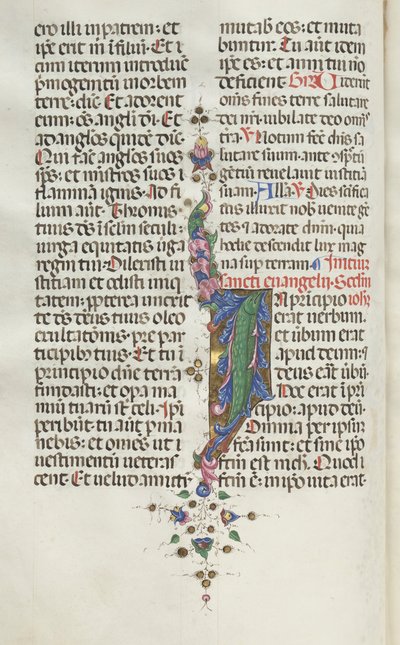 ero illi in patrem: et
ipse erit m̄ in filiū. Et c̄
cum iterum introduc̄
p̄mogenitū in orbem
terre: dic̄. Et adorent
eum oēs angl̄i dī. Et
ad anglos quidē dic̄.
Qui fac̄ anglos suos
sp̄s: et mīstros suos ī
flammā ignis. Ad fi
lium aūt. Thronus
tuus dē in sc̄lm seculi:
uirga equitatis uīga
regni tui. Dilexisti iu
stitiam et odisti iniqui
tatem: ꝓpterea unxit
te dē deus tuus oleo
exultatōnis: pre par
ticipibꝰ tuis. Et tu ī
principio dn̄e terrā
fundasti: et opa ma
nuū tuarū st̄ celi. Ipī
peribūt: tu aūt ꝑma
nebis: et omēs ut ī
uestimentū veteras
cent. Et uelud amicti
mutab̄ eos: et muta
buntur. Tu aūt idem
ipse es: et anni tui nō
deficient. Gr̄. Viderūt
om̄s fines terre salutare
dei nr̄i: iubilate deo om̄s
terra. V̄ Notum fec̄ dn̄s sa
lutare suum: ante ꝯspectū
gentiū reuelauit iustitiā
suam. Alla. V̄ Dies sc̄ifica
tus illuxit nob̄: uenite gē
tes et adorate dnm: quia
hodie descendit lux mag
na super terram. Initiū
sancti euangelii. Sc̄dm
ioh̄em.
In principio
erat uerbum:
et ūbum erat
apud deum: et
deus erat ūbū.
Hoc erat ī prī
cipio: apud deū.
Omnia per ipsum
facta sunt: et sine ipo
fc̄m est nich̄. Quod
fc̄m ē: in ipo uita erat.